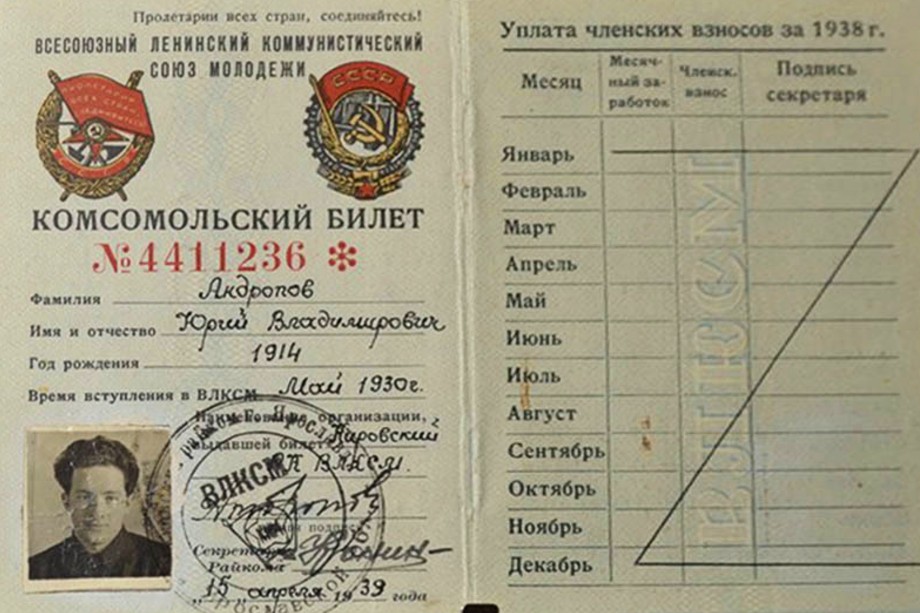 Пролетарии всех стран, соединяйтесь!
ВСЕСОЮЗНЫЙ ЛЕНИНСКИЙ КОММУНИСТИЧЕСКИЙ
СОЮЗ МОЛОДЕЖИ
СССР
КОМСОМОЛЬСКИЙ БИЛЕТ
№4411236 *
Фамилия Андропов
Имя и отчество Юрий Владимирович
Год рождения 1914
Время вступления в ВЛКСМ Май 1930г.
Наименование организации,
выдавшей билет Кировский
РК ВЛКСМ.
ВЛКСМ
Секретарь
Райкома
„15 апреля 1939 года
Уплата членских взносов за 1938 г.
Месяц
Месяч-
ный за-
работок
Членск.
взнос
Подпись
секретаря
Январь
Февраль
Март
Апрель
Май
Июнь
Июль
Август
Сентябрь
Октябрь
Ноябрь
Декабрь
ВЛКСМ